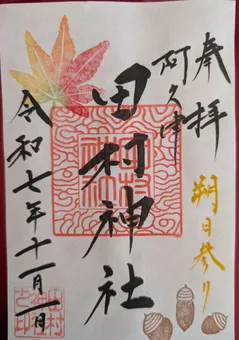 奉拝
朔日参り
阿久津
田村神社
令和七年十一月一日